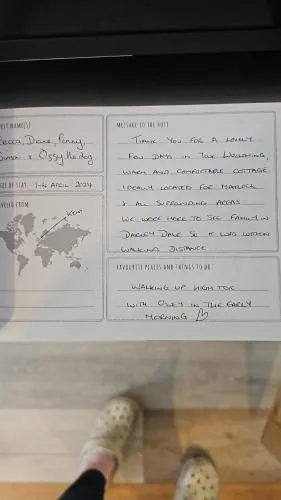 GUEST NAME(S)
Becca, Diane, Penny,
Simon & Ossy the dog.
DATES OF STAY: 1-4 APRIL 2024
TRAVELLED FROM
Kent
MESSAGE TO THE HOST
THANK YOU FOR A LOVELY
FEW DAYS IN YOUR WELCOMING,
WARM AND COMFORTABLE COTTAGE
IDEALLY LOCATED FOR MATLOCK
& ALL SURROUNDING AREAS
WE WERE HERE TO SEE FAMILY IN
DARLEY DALE SO IT WAS WITHIN
WALKING DISTANCE
FAVOURITE PLACES AND THINGS TO DO
WALKING UP HIGH TOR
WITH OSSY IN THE EARLY
MORNING